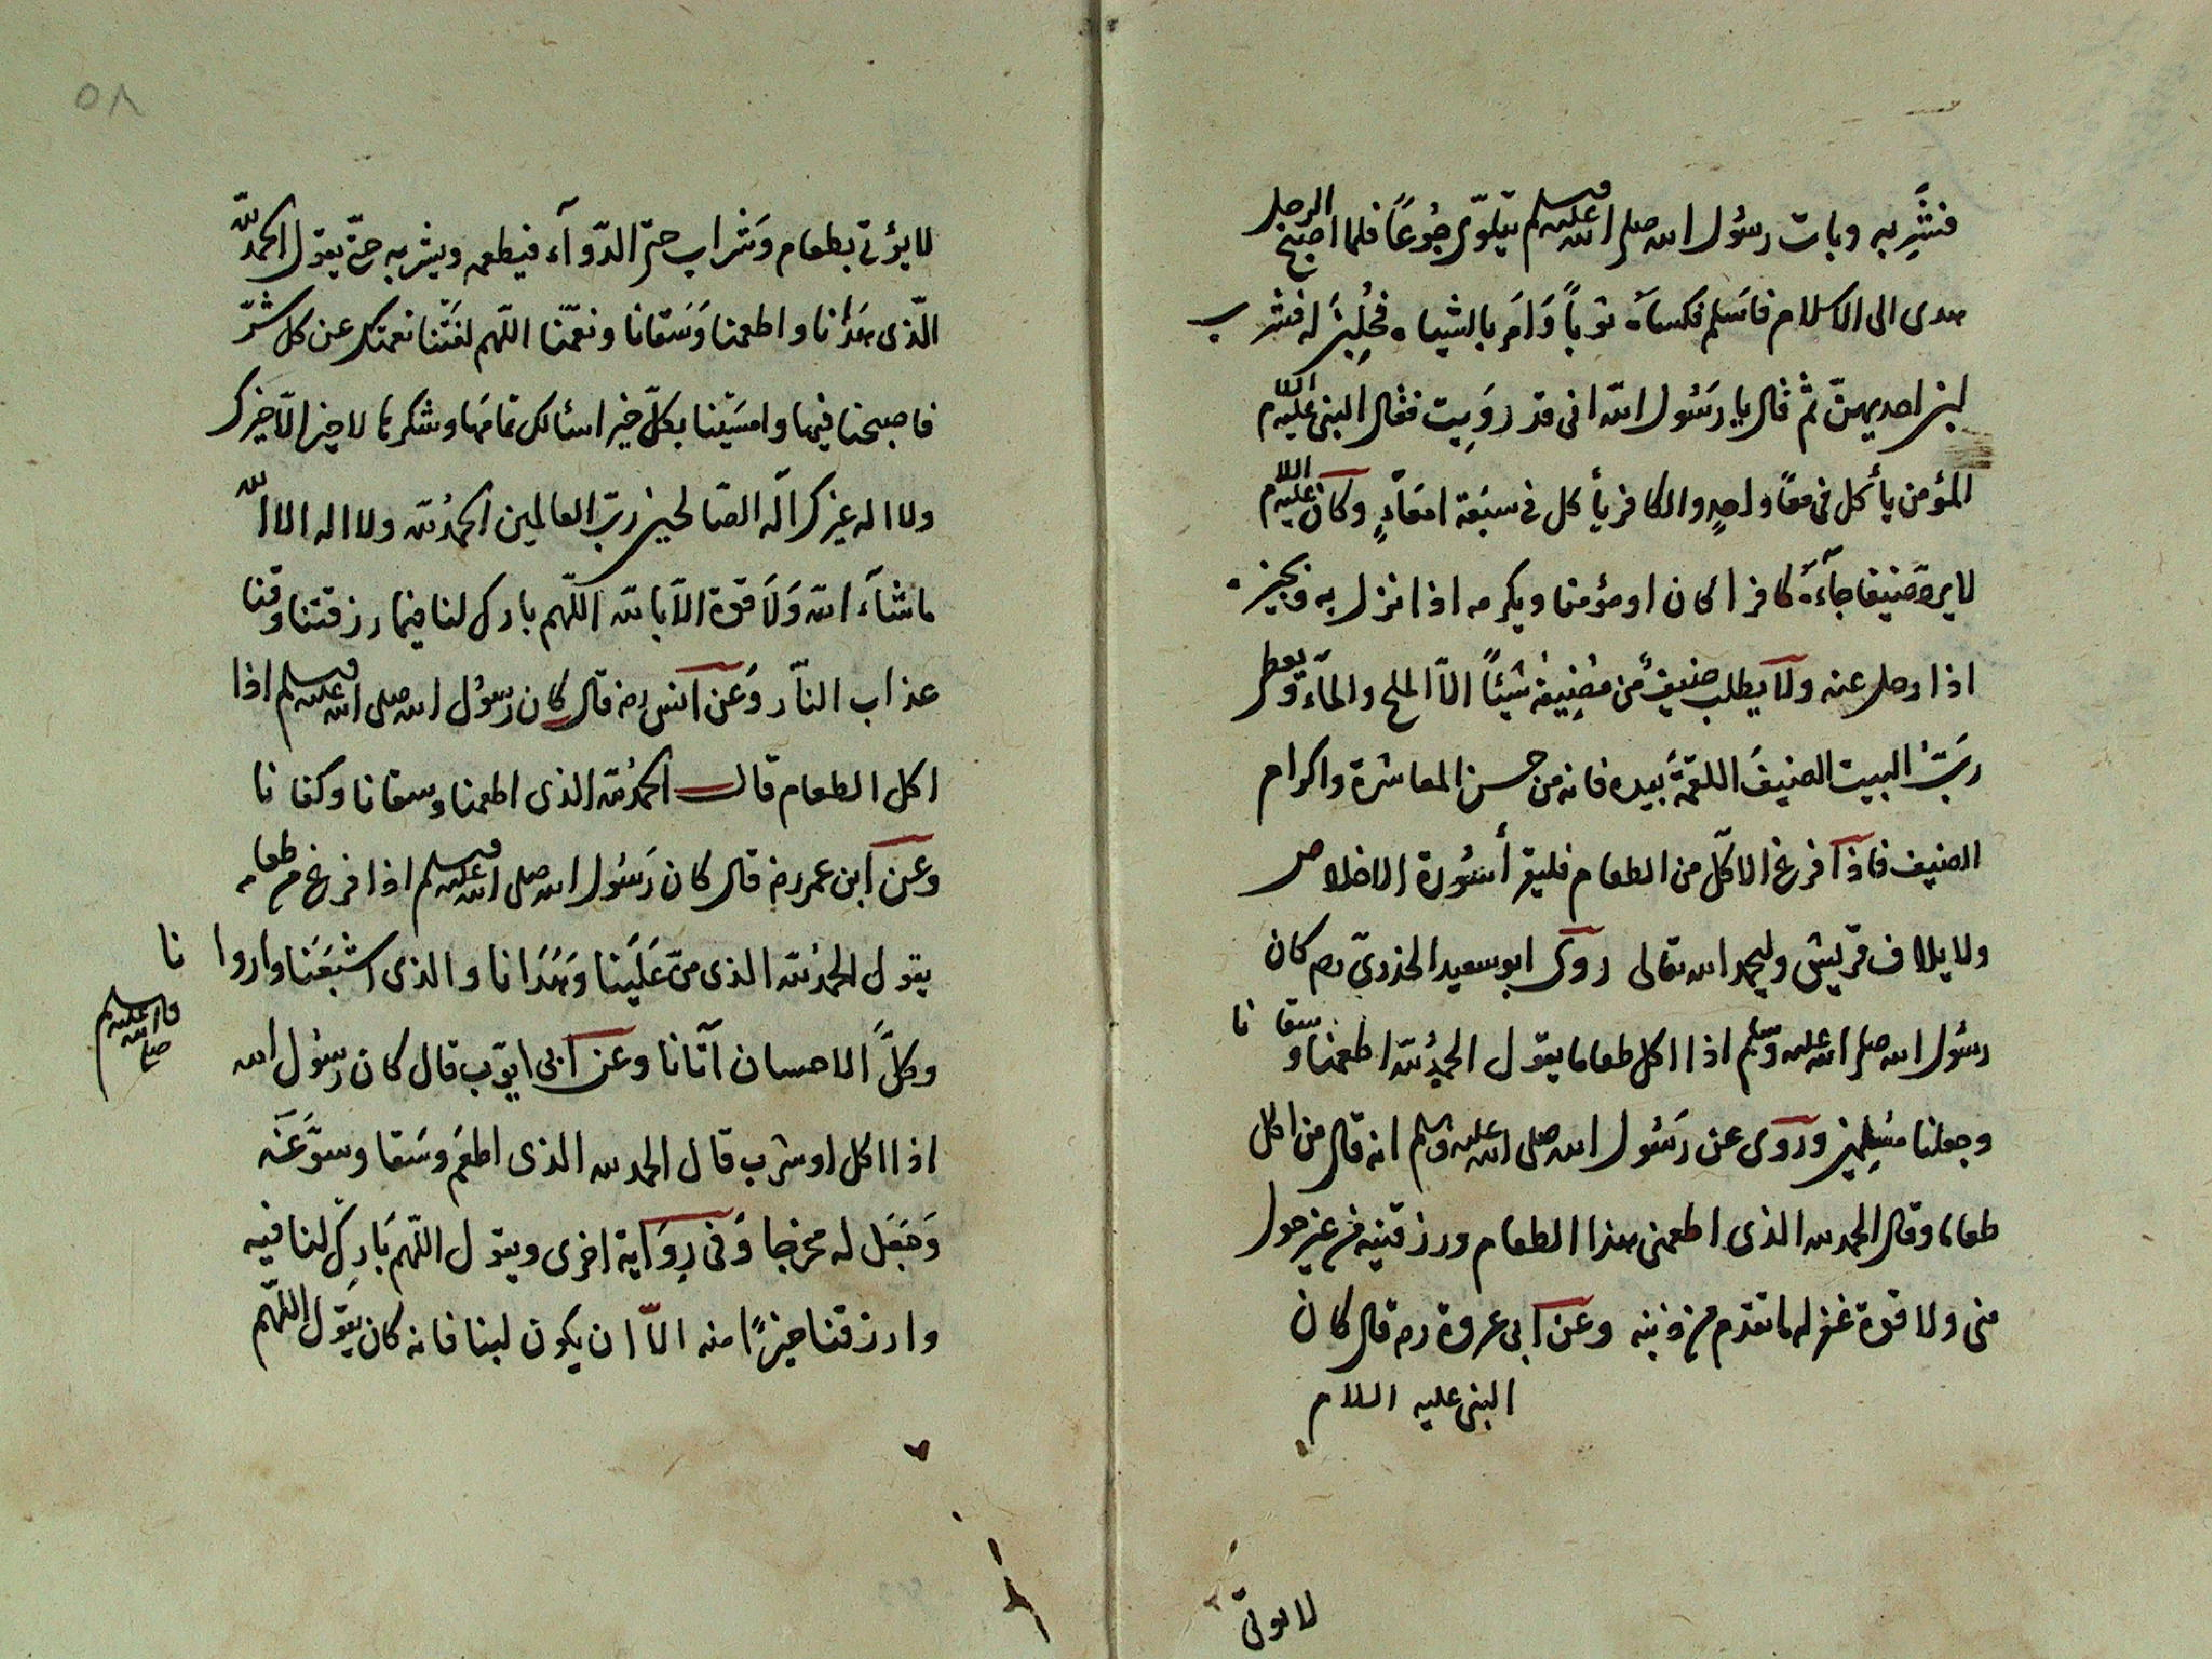 فشربه وبات رسول الله صلى الله عليه وسلم يتلوّى جُوعًا فلما اصبح الرجل
هدى الى الاسلام فاسَلم فكساَه ثوباً وَامَر بالشياه فحُلِبْنَ له فشرب
لبن احديهنّ ثم قال يا رسُول الله انى قد رَوِيت فقال النبى عليه السلام
المؤمن يأكل فى معًا واحدٍ والكافر يأكل فى سبَعة امعَاءٍ وكان عليه السلام
لا يردّ ضيفا جآءَهُ كافرا كان او مؤمنا ويكرمه اذا نزل به ويجيزه
اذا رحل عنه ولا يطلب ضيفٌ من مُضِيفهٖ شيئًا الاّ الملح والمآء ويعطى
ربّ البيت الضيفَ اللقمةَ بيده فانه من حسن المعاشرة واكرام
الضيف فاذا فرغ الاكل من الطعام فليقرأ سُورة الاخلاص
ولايلاف قريش وليحمد الله تعالى روى ابو سعيد الخدرىّ رضـ كان
رسُول الله صلى الله عليه وسلم اذا اكل طعاما يقول الحمدُ لله اطعمنا وسقانا
وجعلنا مسُلِمين وروى عن رسُول الله صلى الله عليه وسلم انه قال من اكل
طعاما وقال الحمد لله الذى اطعمنى هذا الطعام ورزقنيه من غير حول
منى ولا قوة غفر له ما تقدم من ذنبه وعن ابى عروة رضـ قال كان
النبى عليه السلام
لا يؤتى
٥٨
لا يؤتى بطعام وشراب حتى الدّوآء فيطعمه ويشربه حتى يقول الحمد لله
الّذى هَدانا واطعمنا وَسَقانا ونعّمنا اللّهم الفَتْنا نعمتك عن كل شرّ
فاصبحنا فيها وامسَيْنا بكلّ خير اسئالك تمامَها وشكرها لا خير الّا خيرك
ولا اله غيرك اله الصّالحين ربّ العالمين الحمدُ لله ولا اله الا الله
ماشآء الله وَلاَ قوة الاّ بالله اللّهم بارك لنا فيما رزقتنا وقنا
عذاب النّار وعَن انس رضـ قال كان رسُول الله صلى الله عليه وسلم اذا
اكل الطعام قال الحمدُ لله الذى اطعمنا وسقانا وكفانا
وعن ابن عمر رضـ قال كان رَسُول الله صلى الله عليه وسلم اذا فرغ من طعامه
يقول الحمدُ لله الذى منّ عَلَينا وَهَدَانا والذى اشبَعَنا واروانا
وكلَّ الاحسان آتانا وعن ابى ايّوب قال كان رسُول الله
صلى الله عليه وسلم
اذا اكل او شرب قال الحمد لله الذى اطعَم وسَقا وسوّغَه
وَجَعَل له مخرجا وَفى رِوَاية اخرى ويقول اللّهم بَارِك لنا فيه
وارزقنا خيرًا منه الاّ ان يكون لبنا فانه كان يقَول اللّهم